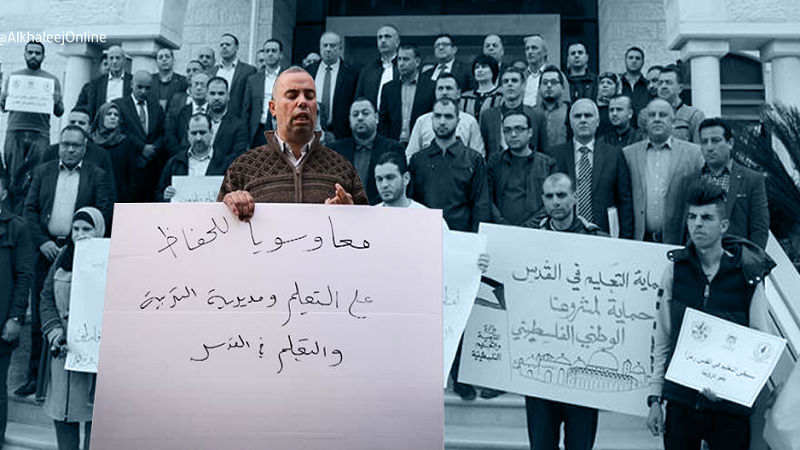 @AlkhaleejOnline
معا وسويا للحفاظ
على التعليم ومديرية التربية
والتعليم في القدس
حماية التعليم في القدس
حماية لمشروعنا
الوطني الفلسطيني
وزارة
التربية
والتعليم
الفلسطينية